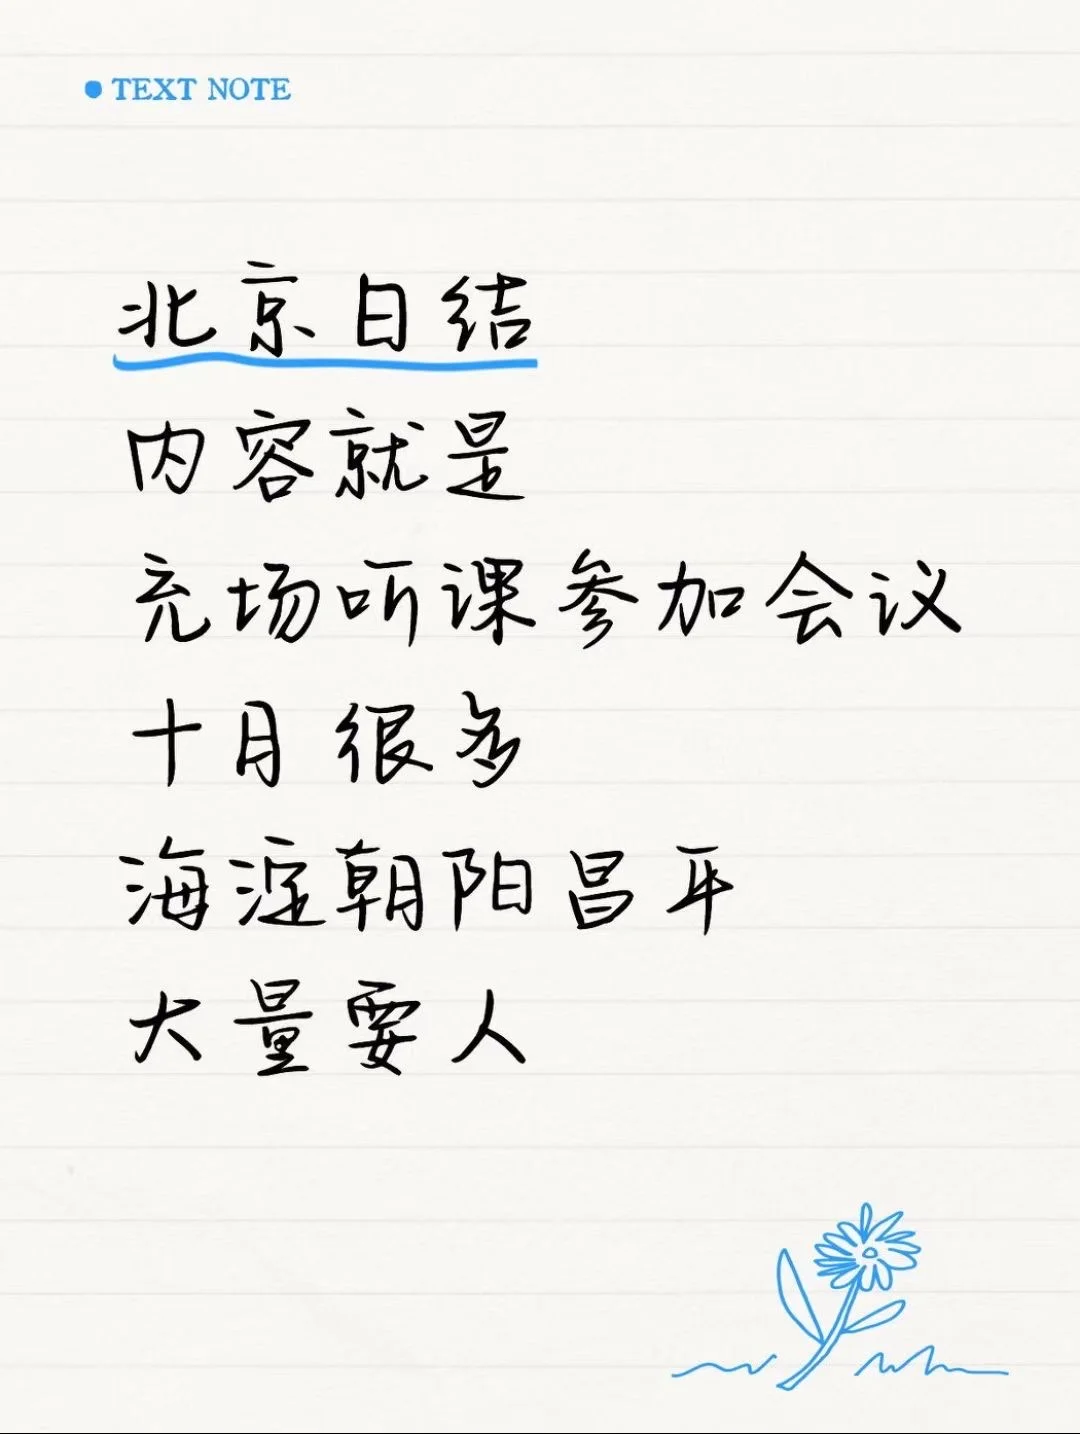 TEXT NOTE
北京日结
内容就是
充场听课参加会议
十月很多
海淀朝阳昌平
大量要人